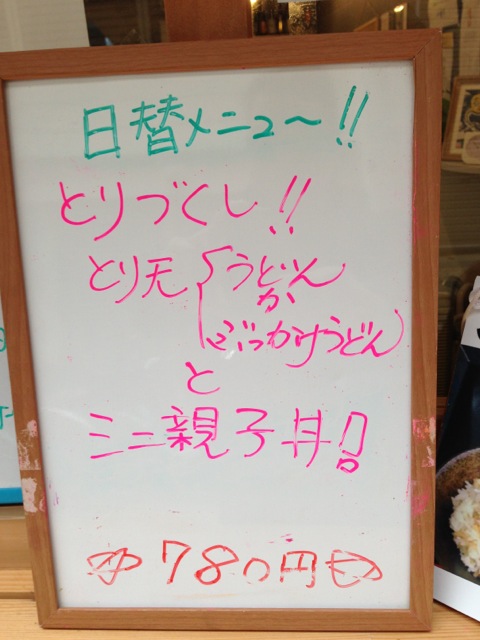 日替メニュ〜!!
とりづくし!!
とり天 うどん
か
ぶっかけうどん
と
ミニ親子丼!
780円